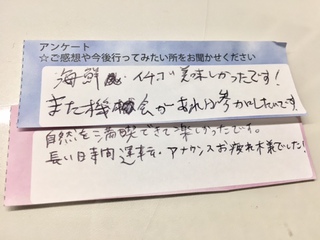 アンケート
☆ご感想や今後行ってみたい所をお聞かせください
海鮮・イチゴ美味しかったです!
また機会があれば参加したいです!
自然を満喫できて楽しかったです。
長い時間運転・アナウンスお疲れ様でした!